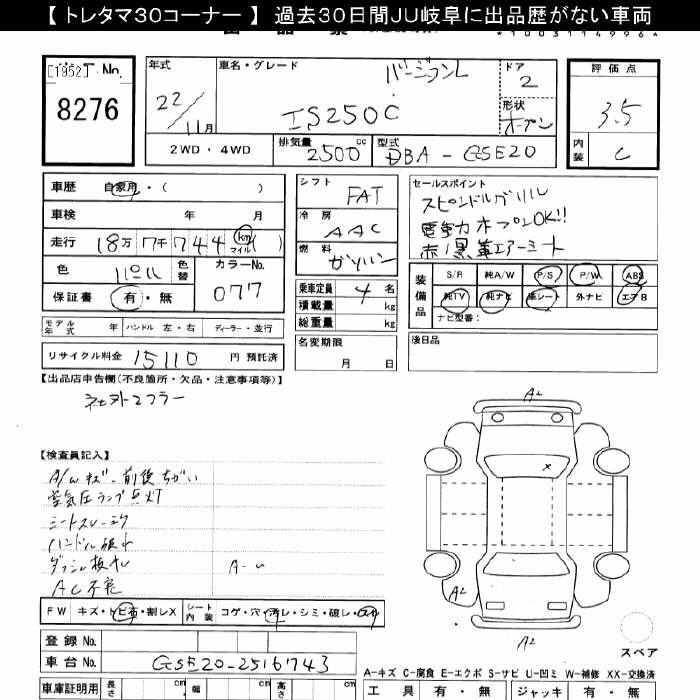 【 トレタマ30コーナー 】 過去30日間JU岐阜に出品歴がない車両
*1003114996*
[1952] No.
8276
年式 22/11月
車名・グレード バージョンL
IS250C
ドア 2
形状 オープン
評価点 3.5
内装 C
2WD・4WD
排気量 2500 cc
型式 DBA-GSE20
車歴 自家用・( )
車検 年 月
走行 18万7千744 (km マイル)
色 パール 色替 カラーNo. 077
保証書 有・無
シフト FAT
冷房 AAC
燃料 ガソリン
乗車定員 4 名
積載量 kg
総重量 kg
セールスポイント
スピンドルグリル
電動オープンOK!!
赤/黒革エアーシート
装備品
S/R 純A/W P/S P/W ABS
純TV 純ナビ 革シート 外ナビ エアB
ナビ型番:
モデル年式 年 ハンドル 左・右 ディーラー・並行
リサイクル料金 15110 円 預託済
名変期限 月 日
後日品
【出品店申告欄(不良箇所・欠品・注意事項等)】
社外マフラー
【検査員記入】
A/Wキズ、前後ちがい
空気圧ランプ点灯
シートスレ
ハンドル
A/C不良
A2
A2
A2
FW キズ・トビ石・割レX
シート内装 コゲ・穴・汚レ・シミ・破レ・スレ
登録No.
車台No. GSE20-2516743
スペア
A-キズ C-腐食 E-エクボ S-サビ U-凹ミ W-補修 XX-交換済
車庫証明用 長さ cm 幅 cm 高さ cm
工具 有・無 ジャッキ 有・無